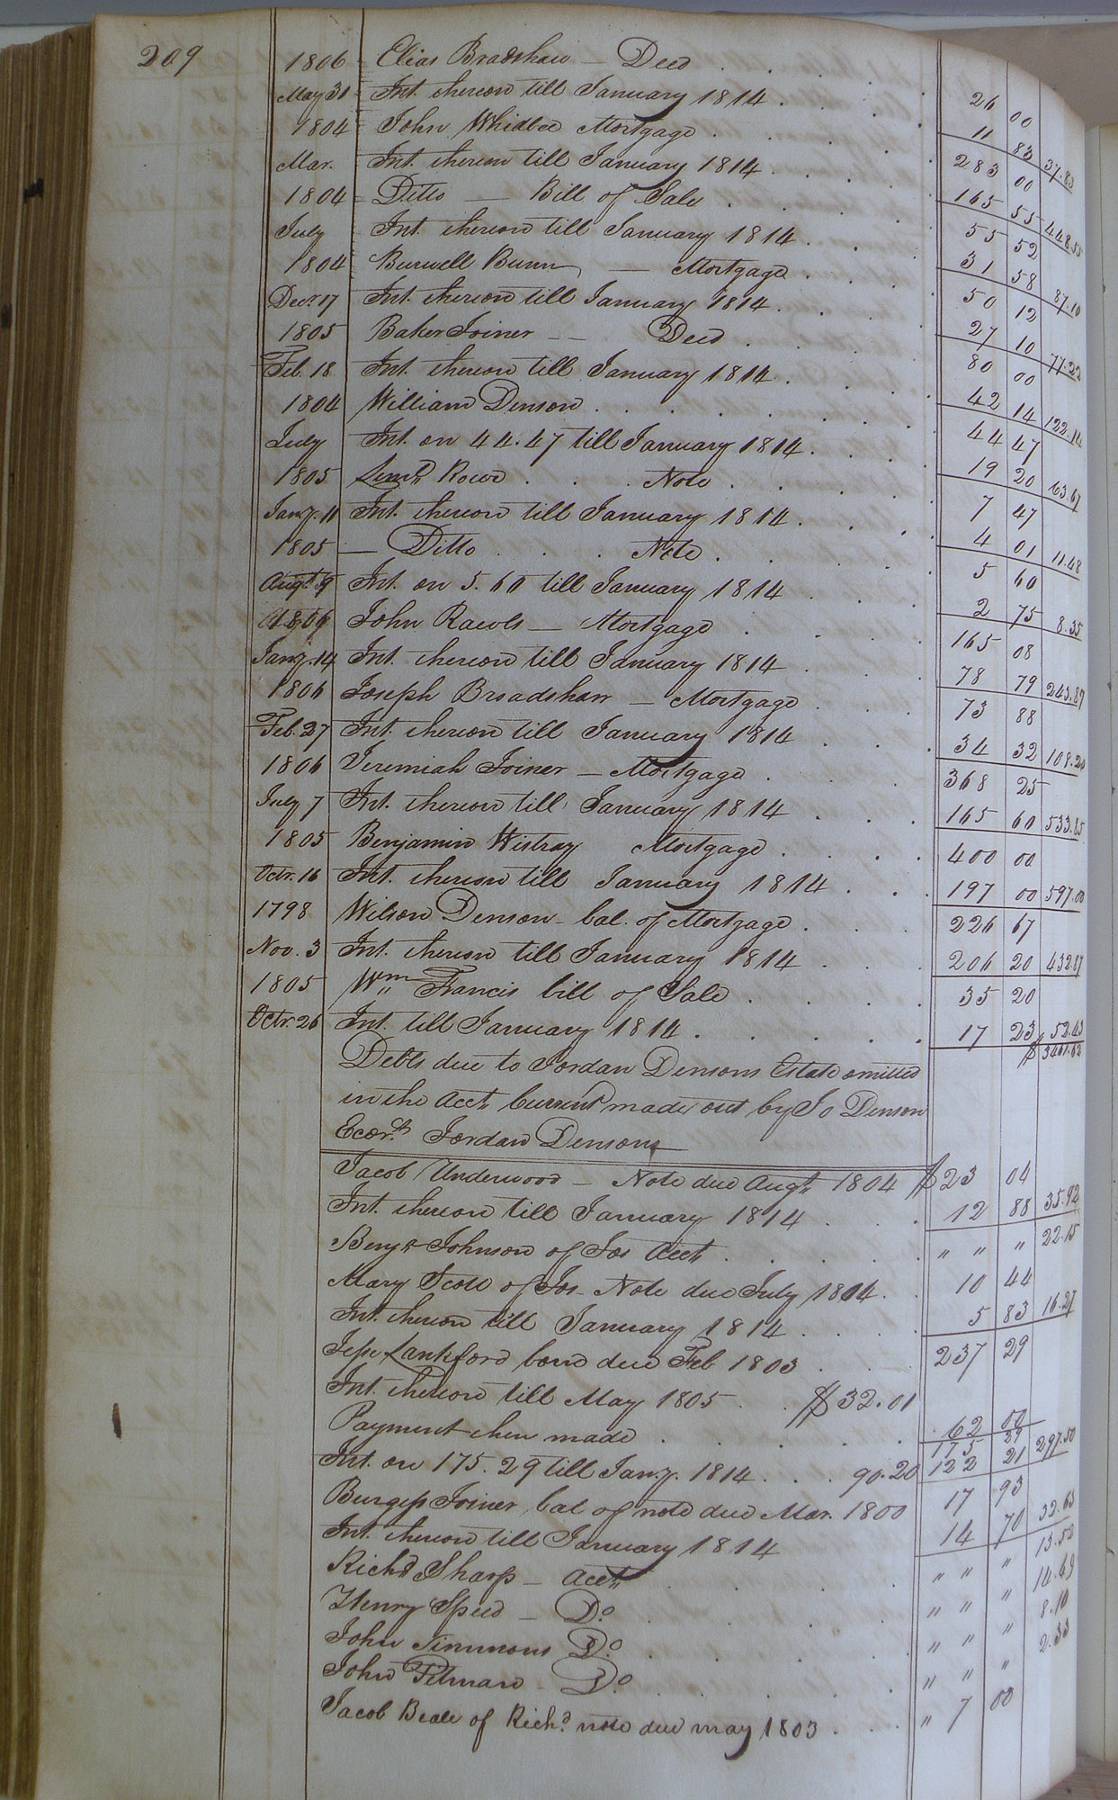 209
1806 Elias Bradshaw — Deed 26 00
May 31 Int. thereon till January 1814 11 83 37.83
1804 John Whidbee Mortgage 283 00
Mar. Int. thereon till January 1814 165 55 448.55
1804 Ditto — Bill of Sale 55 52
July Int. thereon till January 1814 31 58 87.10
1804 Burwell Bunn — Mortgage 50 12
Decr. 17 Int. thereon till January 1814 27 10 77.22
1805 Baker Joiner — Deed 80 00
Feb. 18 Int. thereon till January 1814 42 14 122.14
1804 William Denson 44 47
July Int. on 44.47 till January 1814 19 20 63.67
1805 Leml. Rowe Note 7 47
Jany. 11 Int. thereon till January 1814 4 01 11.48
1805 — Ditto Note 5 60
Augt. 9 Int. on 5.60 till January 1814 2 75 8.35
1806 John Rawls — Mortgage 165 08
Jany. 14 Int. thereon till January 1814 78 79 243.87
1806 Joseph Bradshaw — Mortgage 73 88
Feb. 27 Int. thereon till January 1814 34 32 108.20
1806 Jeremiah Joiner — Mortgage 368 25
July 7 Int. thereon till January 1814 165 60 533.85
1805 Benjamin Wistray Mortgage 400 00
Octr. 16 Int. thereon till January 1814 197 00 597.00
1798 Wilson Denson — bal. of Mortgage 226 67
Nov. 3 Int. thereon till January 1814 206 20 432.87
1805 Wm. Francis bill of Sale 35 20
Octr. 26 Int. till January 1814 17 23 52.43
$ 3461.62
Debts due to Jordan Densons Estate omitted
in the Acct. Current made out by Jo Denson
Ecor. Jordan Denson
Jacob Underwood — Note due Augt. 1804 $23 04
Int. thereon till January 1814 12 88 35.92
Benjn. Johnson of Jos Acct. " " " 22.15
Mary Scott of Jos. Note due July 1804 10 44
Int. thereon till January 1814 5 83 16.27
Jesse Lankford bond due Feb 1803 237 29
Int. thereon till May 1805 $32.01
Payment then made 62 00
175 29
Int. on 175.29 till Jany. 1814 90.20 122 21 297.50
Burgess Joiner bal of note due Mar. 1800 17 93
Int. thereon till January 1814 14 70 32.63
Richd. Sharp — Acct. " " " 13.50
Henry Speed — Do. " " " 14.69
John Simmons Do. " " " 8.10
John Pitman — Do. " " " 2.33
Jacob Beale of Richd. note due may 1803 " 7 00